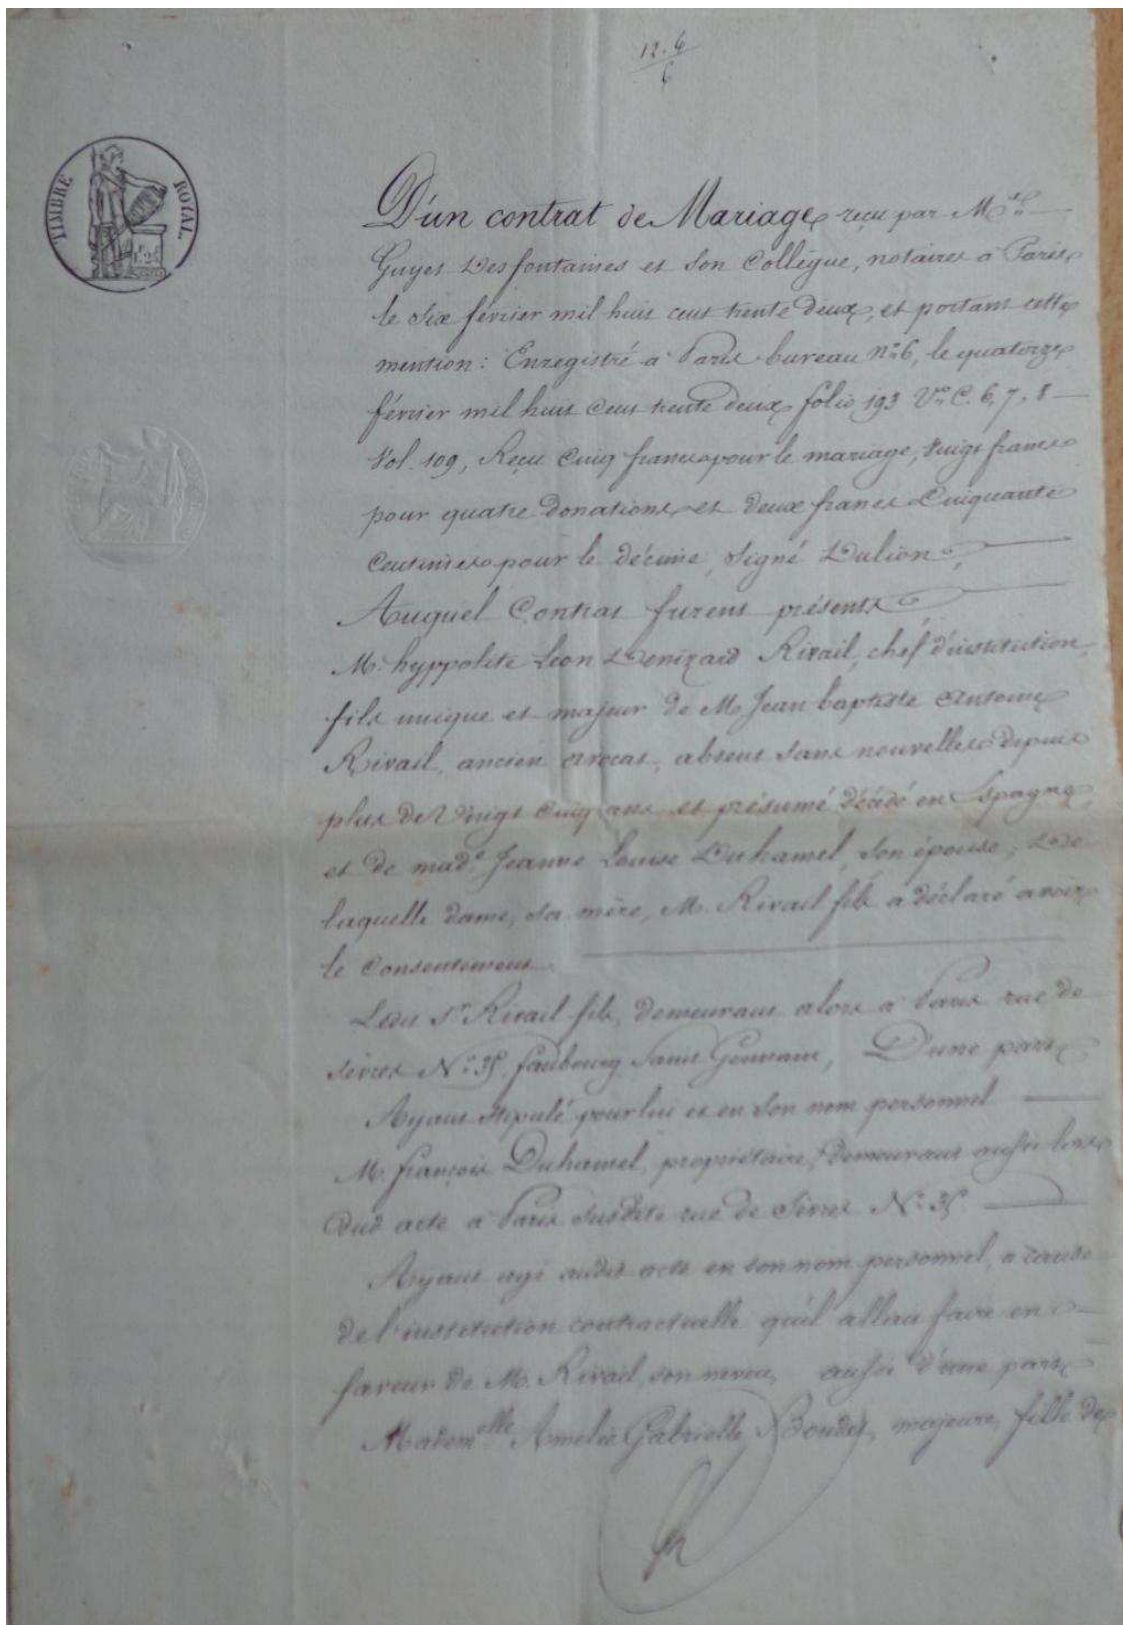 12. 6
6
TIMBRE ROYAL
1f 25
D'un contrat de Mariage reçu par Me
Guyet Desfontaines et son Collègue, notaires à Paris
le six février mil huit cent trente deux, et portant cette
mention: Enregistré à Paris bureau No. 6, le quatorze
février mil huit cent trente deux folio 193 Vo. C. 6, 7, 8
Vol. 109, Reçu Cinq francs pour le mariage, vingt francs
pour quatre donations et deux francs Cinquante
Centimes pour le décime, Signé Dulion
Auquel Contrat furent présents
M. hyppolite Léon Denizard Rivail, chef d'institution,
fils unique et majeur de M. Jean baptiste Antoine
Rivail, ancien avocat, absent sans nouvelles depuis
plus de Vingt cinq ans et présumé décédé en Espagne,
et de made. Jeanne Louise Duhamel, son épouse; de
laquelle dame, sa mère, M. Rivail fils a déclaré avoir
le Consentement
Ledit Sr. Rivail fils, demeurant alors à Paris rue de
sèvres No. 35, faubourg Saint Germain, D'une part
Ayant stipulé pour lui et en son nom personnel
M. françois Duhamel, propriétaire, demeurant aussi lors
dud acte à Paris susdite rue de Sèvres No. 35
Ayant agi audit acte en son nom personnel, à cause
de l'institution contractuelle qu'il allait faire en
faveur de M. Rivail, son neveu, aussi d'une part
Mademelle Amélie Gabrielle Boudet, majeure, fille de